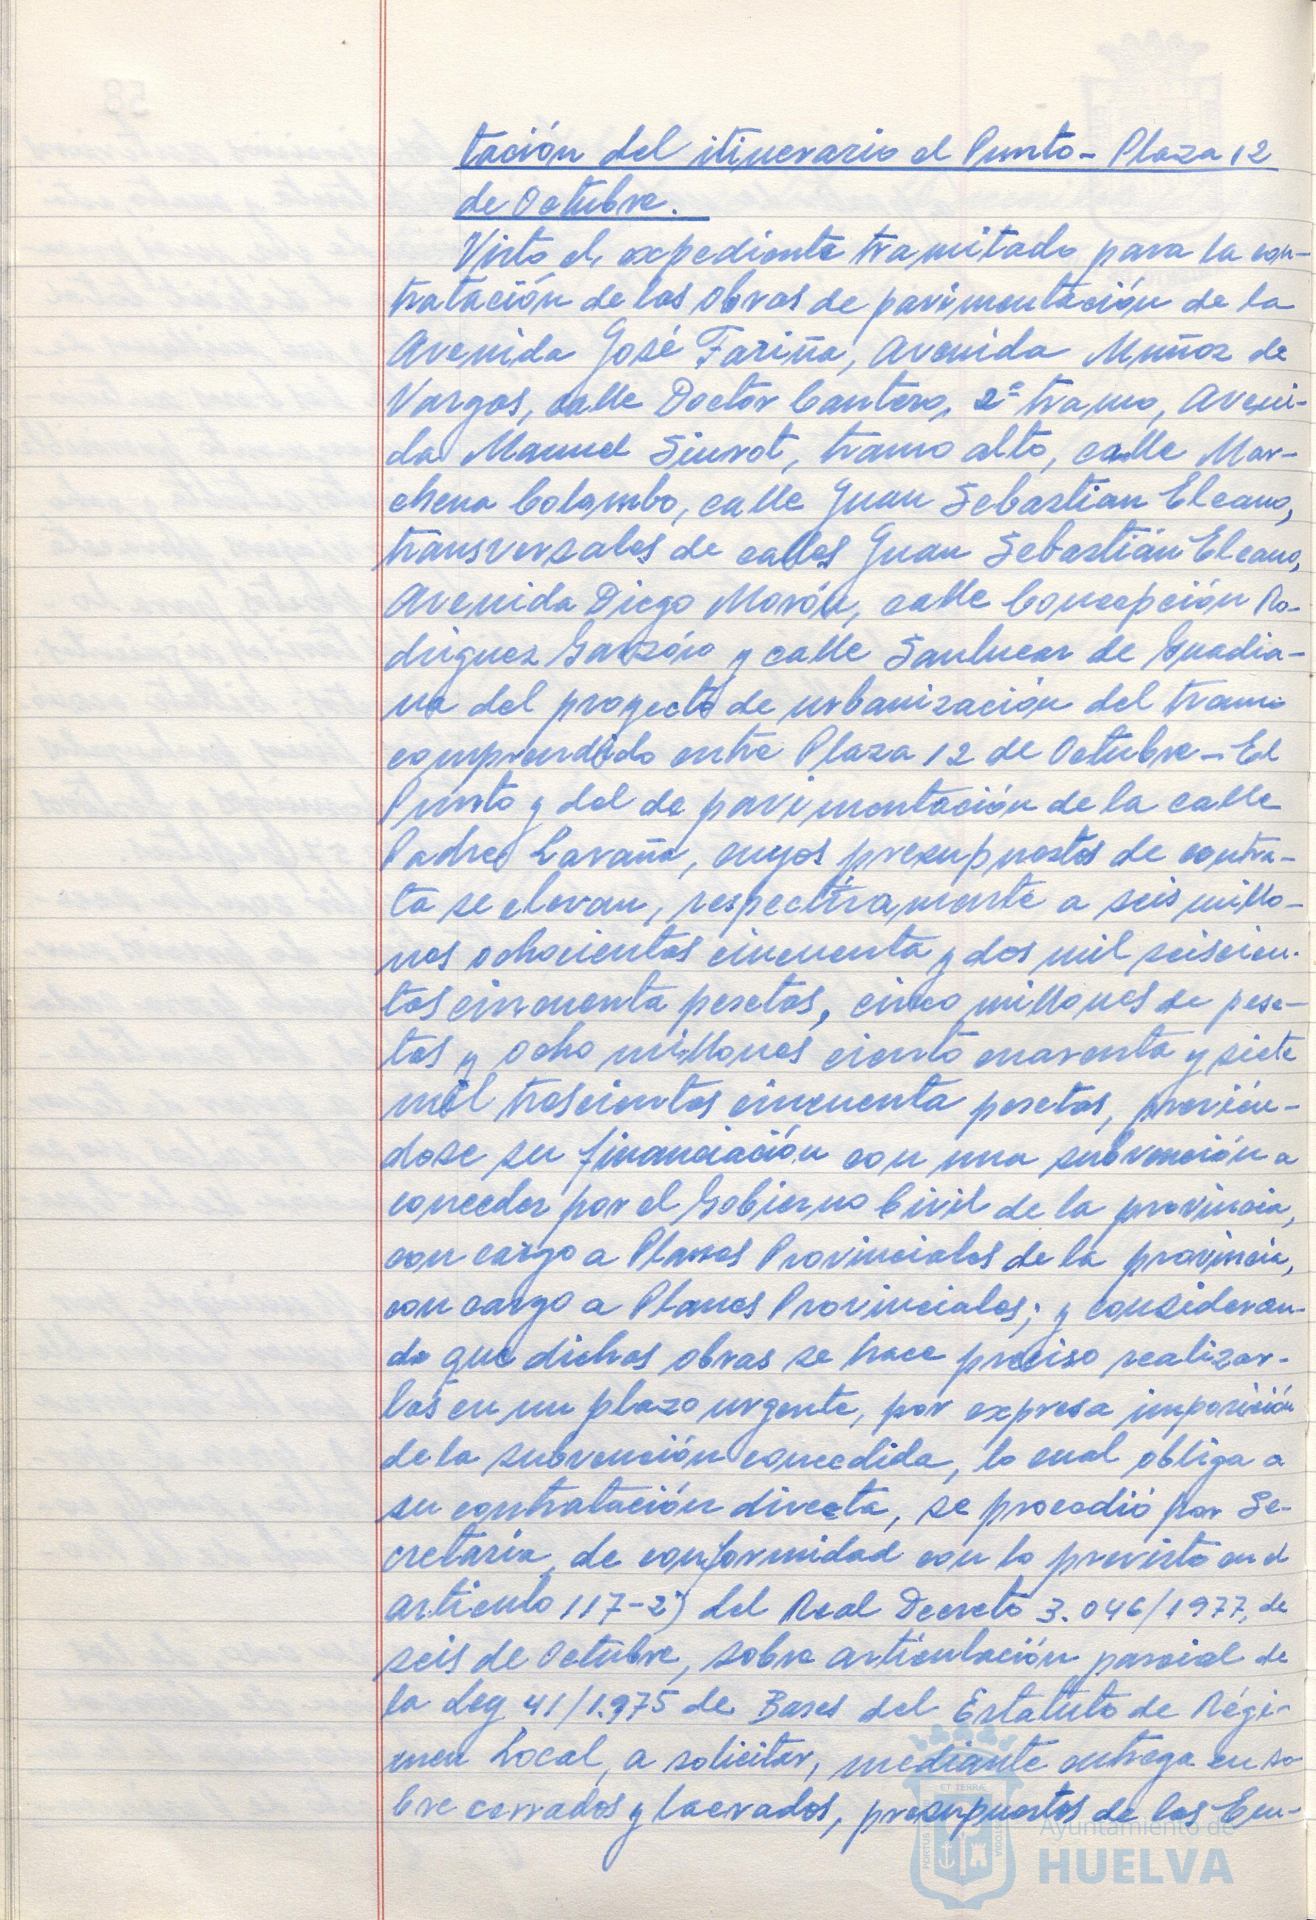 tación del itinerario el Punto - Plaza 12
de Octubre.
Visto el expediente tramitado para la con-
tratación de las obras de pavimentación de la
Avenida José Fariña, Avenida Muñoz de
Vargas, calle Doctor Cantero, 2º tramo, Aveni-
da Manuel Siurot, tramo alto, calle Mar-
chena Colombo, calle Juan Sebastian Elcano,
transversales de calles Juan Sebastián Elcano,
Avenida Diego Morón, calle Concepción Ro-
driguez Garzón y calle Sanlucar de Guadia-
na del proyecto de urbanización del tramo
comprendido entre Plaza 12 de Octubre - El
Punto y del de pavimentación de la calle
Padre Laraña, cuyos presupuestos de contra-
ta se elevan, respectivamente a seis millo-
nes ochocientas cincuenta y dos mil seiscien-
tas cincuenta pesetas, cinco millones de pese-
tas y ocho millones ciento cuarenta y siete
mil trescientas cincuenta pesetas, previén-
dose su financiación con una subvención a
conceder por el Gobierno Civil de la provincia,
con cargo a Planes Provinciales de la provincia,
con cargo a Planes Provinciales; y consideran-
do que dichas obras se hace preciso realizar-
las en un plazo urgente, por expresa imposición
de la subvención concedida, lo cual obliga a
su contratación directa, se procedió por Se-
cretaria, de conformidad con lo previsto en el
artículo 117-2º) del Real Decreto 3.046/1977, de
seis de Octubre, sobre articulación parcial de
la Ley 41/1.975 de Bases del Estatuto de Régi-
men Local, a solicitar, mediante entrega en so
bre cerrados y lacrados, presupuestos de las Em-
Ayuntamiento de
HUELVA